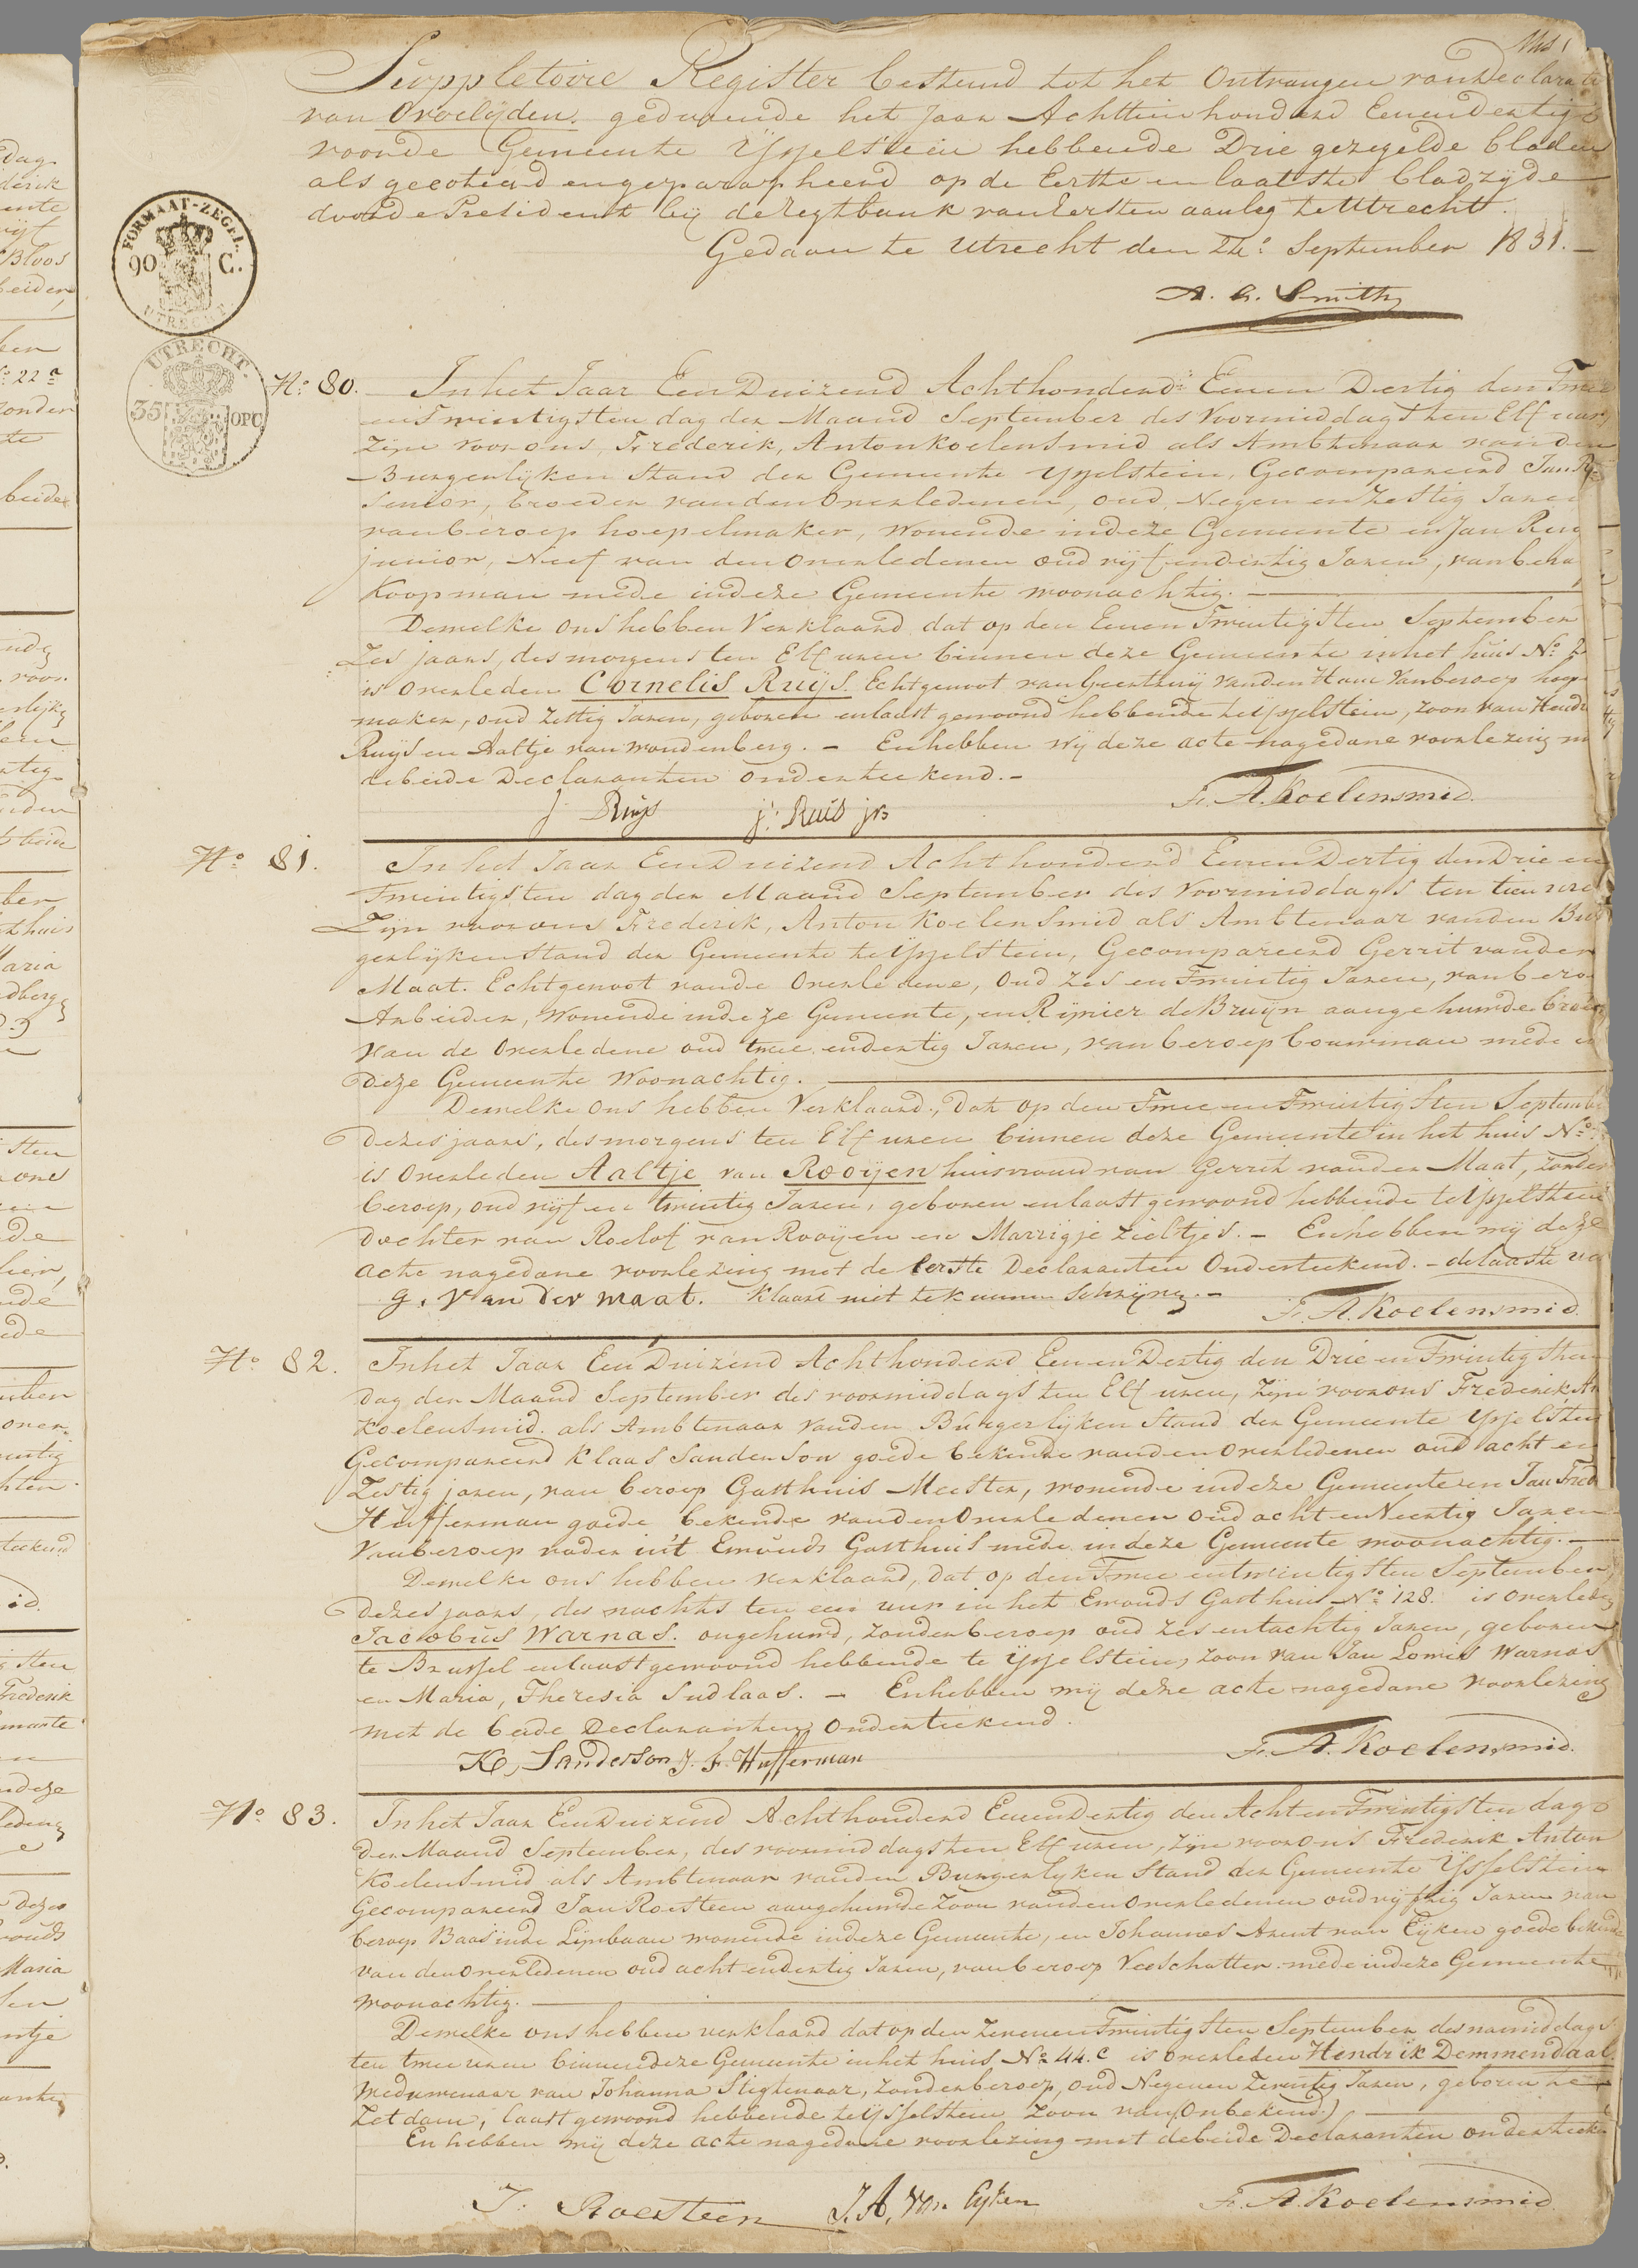 Suppletoire Register bestemd tot het Ontvangen van Declaratie
van Overlijden. geduurende het Jaar Achttien honderd Eenendertig
voorde Gemeente Ysselstein hebbende Drie gezegelde bladen
als gecoteerd en geparapheerd op de Eerste en laatste bladzyde
door de President bij de regtbank van Eersten aanleg te Utrecht.
Gedaan te Utrecht den September 1831.
A. G. Smith
FORMAAT-ZEGEL
90 C.
UTRECHT
UTRECHT.
35 OPC
No. 80. In het Jaar Een Duizend Achthonderd Eenen Dertig den Twee
en Twintigsten dag der Maand September des Voormiddags ten Elf uur
Zijn voor ons, Frederik, Anton Koelensmid als Ambtenaar van den
Burgerlyken Stand der Gemeente Ysselstein, Gecompareerd Jan
Senior, broeder van den Overledenen, oud, Negen en Zestig Jaren
van beroep hoepelmaker, Wonende in deze Gemeente en Jan
junior, Neef van den Overledenen oud vyf en dertig Jaren, van
Koopman mede in deze Gemeente woonachtig.
Dewelke ons hebben Verklaard dat op den Eenen Twintigsten September
jaars, des morgens ten Elf uren binnen deze Gemeente in het huis No.
is Overleden Cornelis Ruijs. Echtgenoot van Geertruij van den Ham Van beroep hoep
maker, oud Zestig Jaren, geboren en laatst gewoond hebbende te Ysselstein, zoon van
Ruijs en Aaltje van Woudenberg. - En hebben wy deze acte nagedane voorlezing
de beide Declaranten onderteekend.-
J Ruijs J: Ruis jr F. A. Koelensmid.
No. 81. In het Jaar Een Duizend Acht honderd Eenen Dertig den Drie en
Twintigsten dag der Maand September des Voormiddags ten tien ure
Zijn voor ons Frederik, Anton Koelensmid als Ambtenaar van den Bur
gerlyken Stand der Gemeente te Ysselstein, Gecompareerd Gerrit van der
Maat. Echtgenoot van de Overledene, Oud Zes en Twintig Jaren, van bero
Arbeider, Wonende in deze Gemeente, en Rijnier de Bruijn aangehuwde
van de Overledene oud twee en dertig Jaren, van beroep bouwman mede
deze Gemeente Woonachtig.
Dewelke ons hebben Verklaard, dat op den Twee en Twintigsten
dezes jaars, des morgens ten Elf uren binnen deze Gemeente in het huis No.
is Overleden Aaltje van Rooijen huisvrouw van Gerrit van der Maat, zonder
beroep, oud vijf en twintig Jaren, geboren en laatst gewoond hebbende te Ysselstein
dochter van Roelof van Rooijen en Marrigje Zieltjes. - En hebben wij deze
acte nagedane voorlezing met de Eerste Declaranten Onderteekend. - de laatste
G. Van Der Maat. Klaard niet te kunnen Schrijven.- F. A. Koelensmid.
No. 82. In het Jaar Een Duizend Achthonderd Een en Dertig den Drie en Twintigsten
dag der Maand September des voormiddags ten Elf uren, zijn voor ons Frederik An
Koelensmid. als Ambtenaar van den Burgerlyken Stand der Gemeente Ysselstein
Gecompareerd Klaas Sanderson goede bekende van den Overledenen oud acht en
Zestig jaren, van beroep Gasthuis Meester, wonende in deze Gemeente en Jan
Hufferman goede bekende van den Overledenen Oud acht en Neertig Jaren
Van beroep vader in't Emouds Gasthuis mede in deze Gemeente woonachtig.
Dewelke ons hebben verklaard, dat op den Twee en twintigsten September
dezes jaars, des nachts ten een uur in het Emouds Gasthuis No. 128. is Overleden
Jacobus Warnas. ongehuwd, Zonder beroep oud Zes en tachtig Jaren, geboren
te Brussel en laatst gewoond hebbende te Ysselstein, zoon van Jan Lowies Warnas
en Maria, Theresia Sudlaas. - En hebben wij deze acte nagedane voorlezing
met de beide Declaranten Onderteekend.
Ks. Sanderson J. F. Hufferman F. A. Koelensmid.
No. 83. In het Jaar Een Duizend Achthonderd Eenen Dertig den Acht en Twintigsten dag
der Maand September, des voormiddags ten Elf uren, zijn voor ons Frederik Anton
Koelensmid als Ambtenaar van den Burgerlyken Stand der Gemeente Ysselstein
Gecompareerd Jan Roesteen aangehuwde Zoon van den Overledenen oud vyftig Jaren van
beroep Baas in de Lijnbaan wonende in deze Gemeente, en Johannes Arent van Eijken goede bekende
van den Overledenen oud acht en dertig Jaren, van beroep Veeschatter mede in deze Gemeente
woonachtig.
Dewelke ons hebben verklaard dat op den Zevenen Twintigsten September des namiddags
ten twee uren binnen deze Gemeente in het huis No. 44.C is Overleden Hendrik Demmendaal.
Weduwenaar van Johanna Stigtenaar, Zonder beroep, oud Negenen Zeventig Jaren, geboren te
Zetdam, laatst gewoond hebbende te Ysselstein zoon van (Onbekend)
En hebben wij deze acte nagedane voorlezing met de beide Declaranten onderteeken
J. Roesteen J. A. Van Eyken F. A. Koelensmid